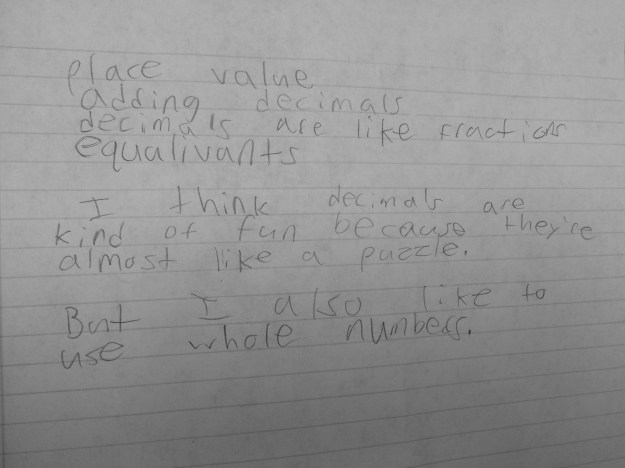 place value
adding decimals
decimals are like fractions
equalivants
I think decimals are
kind of fun because they're
almost like a puzzle.
But I also like to
use whole numbers.